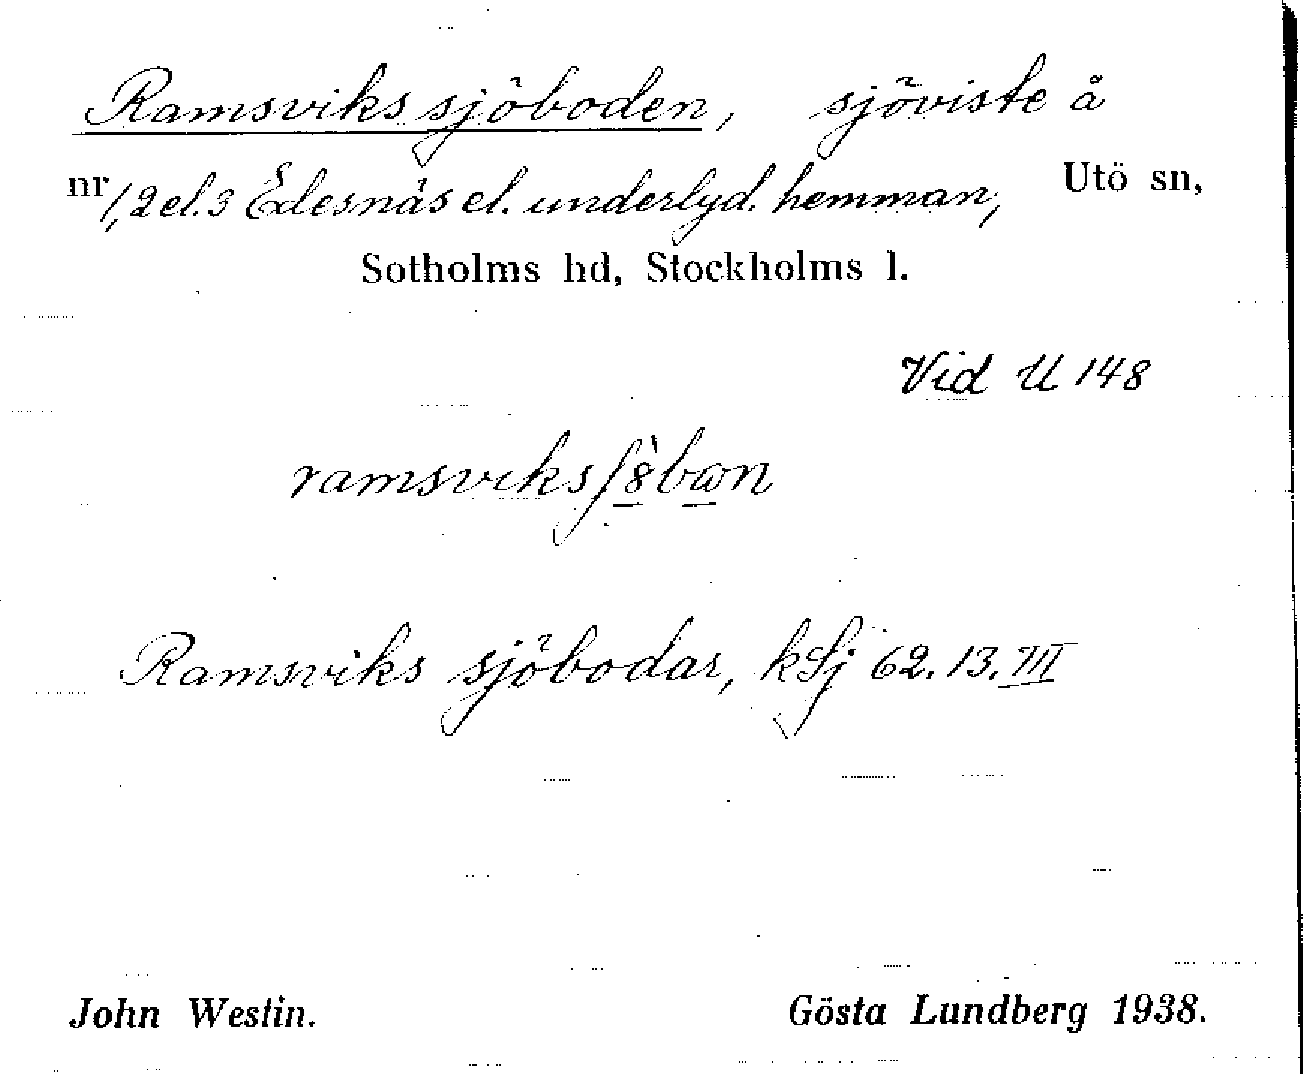 Ramsviks sjöboden, sjöviste å
nr 1, 2 el. 3 Edesnäs el. underlyd. hemman, Utö sn,
Sotholms hd, Stockholms l.
Vid U 148
Ramsviks sjöbodar, kSj 62.13.VII
John Westin. Gösta Lundberg 1938.